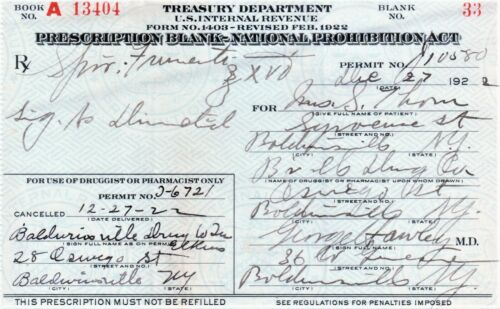 BOOK NO. A 13404
TREASURY DEPARTMENT
U.S. INTERNAL REVENUE
FORM NO. 1403 – REVISED FEB. 1922
BLANK NO. 33
PRESCRIPTION BLANK–NATIONAL PROHIBITION ACT
Rx
Spir: Frumenti
PERMIT NO.
Dec 27 1922
℥ XVI
Sig. As Directed
FOR Mrs. S. Thorn
(GIVE FULL NAME OF PATIENT)
Syracuse St
(STREET AND NO.)
Baldwinsville N.Y.
(CITY) (STATE)
B'ville Drug Co
(NAME OF DRUGGIST OR PHARMACIST UPON WHOM DRAWN)
Oswego St
(STREET AND NO.)
Baldwinsville N.Y.
(CITY) (STATE)
George Hawley M.D.
36 W Genesee
(STREET AND NO.)
Baldwinsville N.Y.
(CITY) (STATE)
FOR USE OF DRUGGIST OR PHARMACIST ONLY
PERMIT NO. J-6721
CANCELLED 12-27-22
(DATE DELIVERED)
Baldwinsville Drug Co
(SIGN FULL NAME AS ON PERMIT)
28 Oswego St
(STREET AND NO.)
Baldwinsville NY
(CITY) (STATE)
THIS PRESCRIPTION MUST NOT BE REFILLED
SEE REGULATIONS FOR PENALTIES IMPOSED